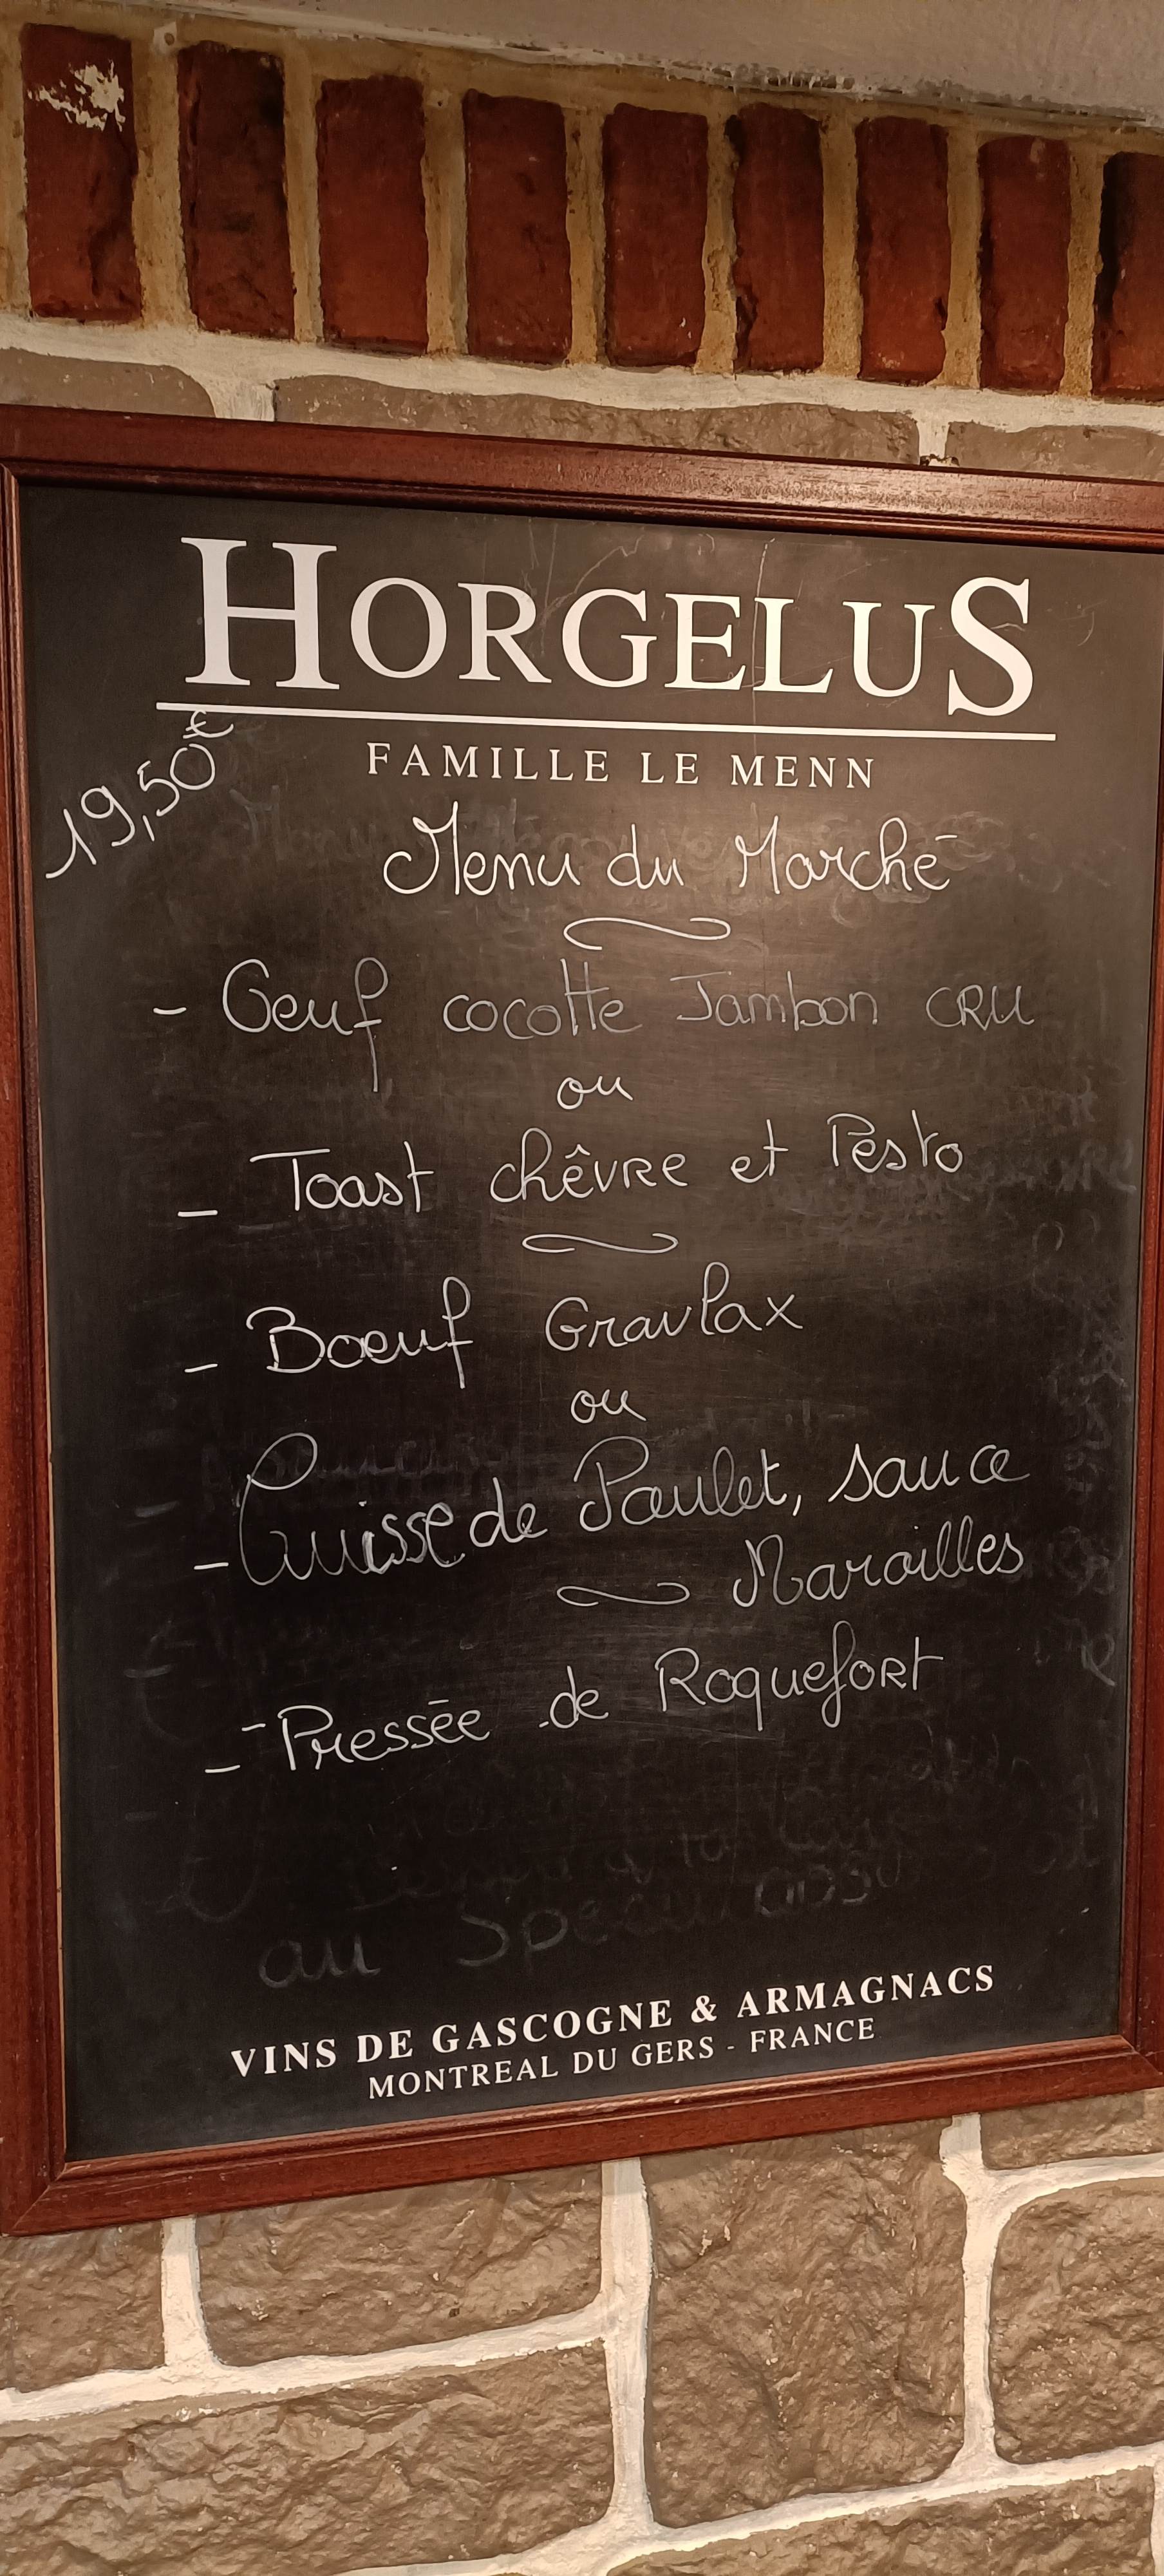 HORGELUS
FAMILLE LE MENN
19,50€
Menu du Marché
- Oeuf cocotte Jambon CRU
ou
- Toast chêvre et Pesto
- Boeuf Gravlax
ou
- Cuisse de Poulet, sauce
Maroilles
- Pressée de Roquefort
au Speculoos
VINS DE GASCOGNE & ARMAGNACS
MONTREAL DU GERS - FRANCE